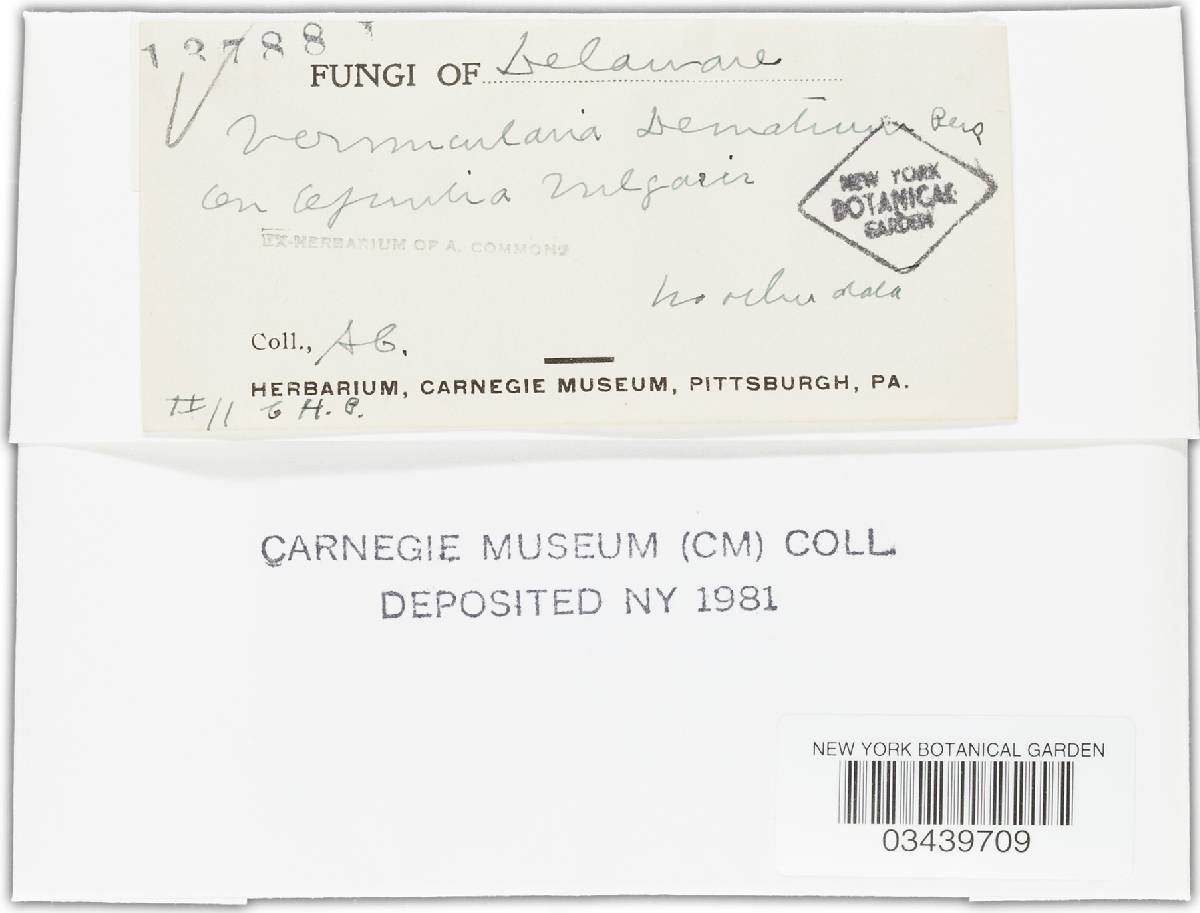 13788
FUNGI OF Delaware
Vermicularia Dematium Pers
on Opuntia vulgaris
NEW YORK
BOTANICAL
GARDEN
EX-HERBARIUM OF A. COMMONS
no other data
Coll., A C.
HERBARIUM, CARNEGIE MUSEUM, PITTSBURGH, PA.
CARNEGIE MUSEUM (CM) COLL.
DEPOSITED NY 1981
NEW YORK BOTANICAL GARDEN
03439709